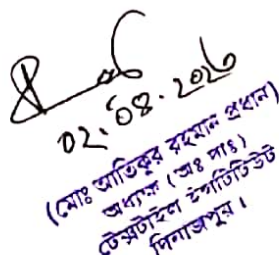 02.08.2026
(মোঃ আতিকুর রহমান প্রধান)
অধ্যক্ষ (অঃ দাঃ)
টেক্সটাইল ইনস্টিটিউট
দিনাজপুর।